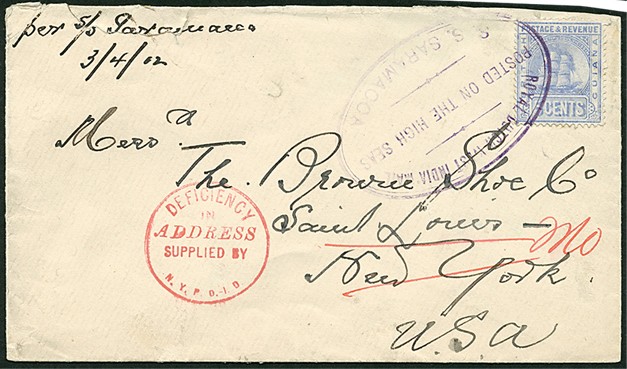 per s/s Saramacco
3/4/02
POSTAGE & REVENUE
GUIANA
CENTS
S.S. SARAMACOA
POSTED ON THE HIGH SEAS
ROYAL DUTCH WEST INDIA MAIL
Messrs
The Browne Shoe Co
Saint Louis — Mo
New York.
USA
DEFICIENCY
IN
ADDRESS
SUPPLIED BY
N.Y.P.O.-I.D.